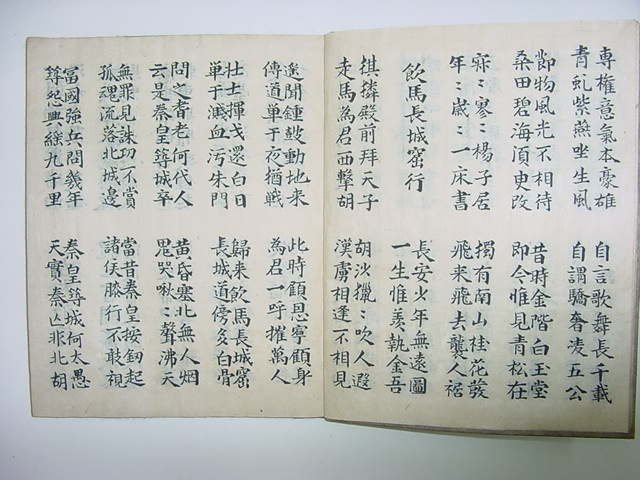 専權意氣本豪雄
青虬紫燕坐生風
自言歌舞長千載
自謂驕奢凌五公
節物風光不相待
桑田碧海須臾改
昔時金階白玉堂
即今惟見青松在
寂〻寥〻楊子居
年〻歳〻一床書
獨有南山桂花發
飛来飛去襲人裾
飲馬長城窟行
長安少年無遠圖
一生惟羨執金吾
棋麟殿前拜天子
走馬為君西擊胡
胡沙獵〻吹人遐
漢虜相逢不相見
遙聞鍾鼓動地来
傳道単于夜猶戦
此時顧恩寧顧身
為君一呼摧萬人
壮士揮戈還白日
単于濺血汚朱門
歸来飲馬長城窟
長城道傍多白骨
問之耆老何代人
云是秦皇築城卒
黄昏塞北無人烟
鬼哭啾〻聲沸天
無罪見誅功不賞
孤魂流落北城邊
當昔秦皇按劔起
諸侯膝行不敢視
富國強兵問幾年
築怨興繇九千里
秦皇築城何太愚
天實秦亡非北胡